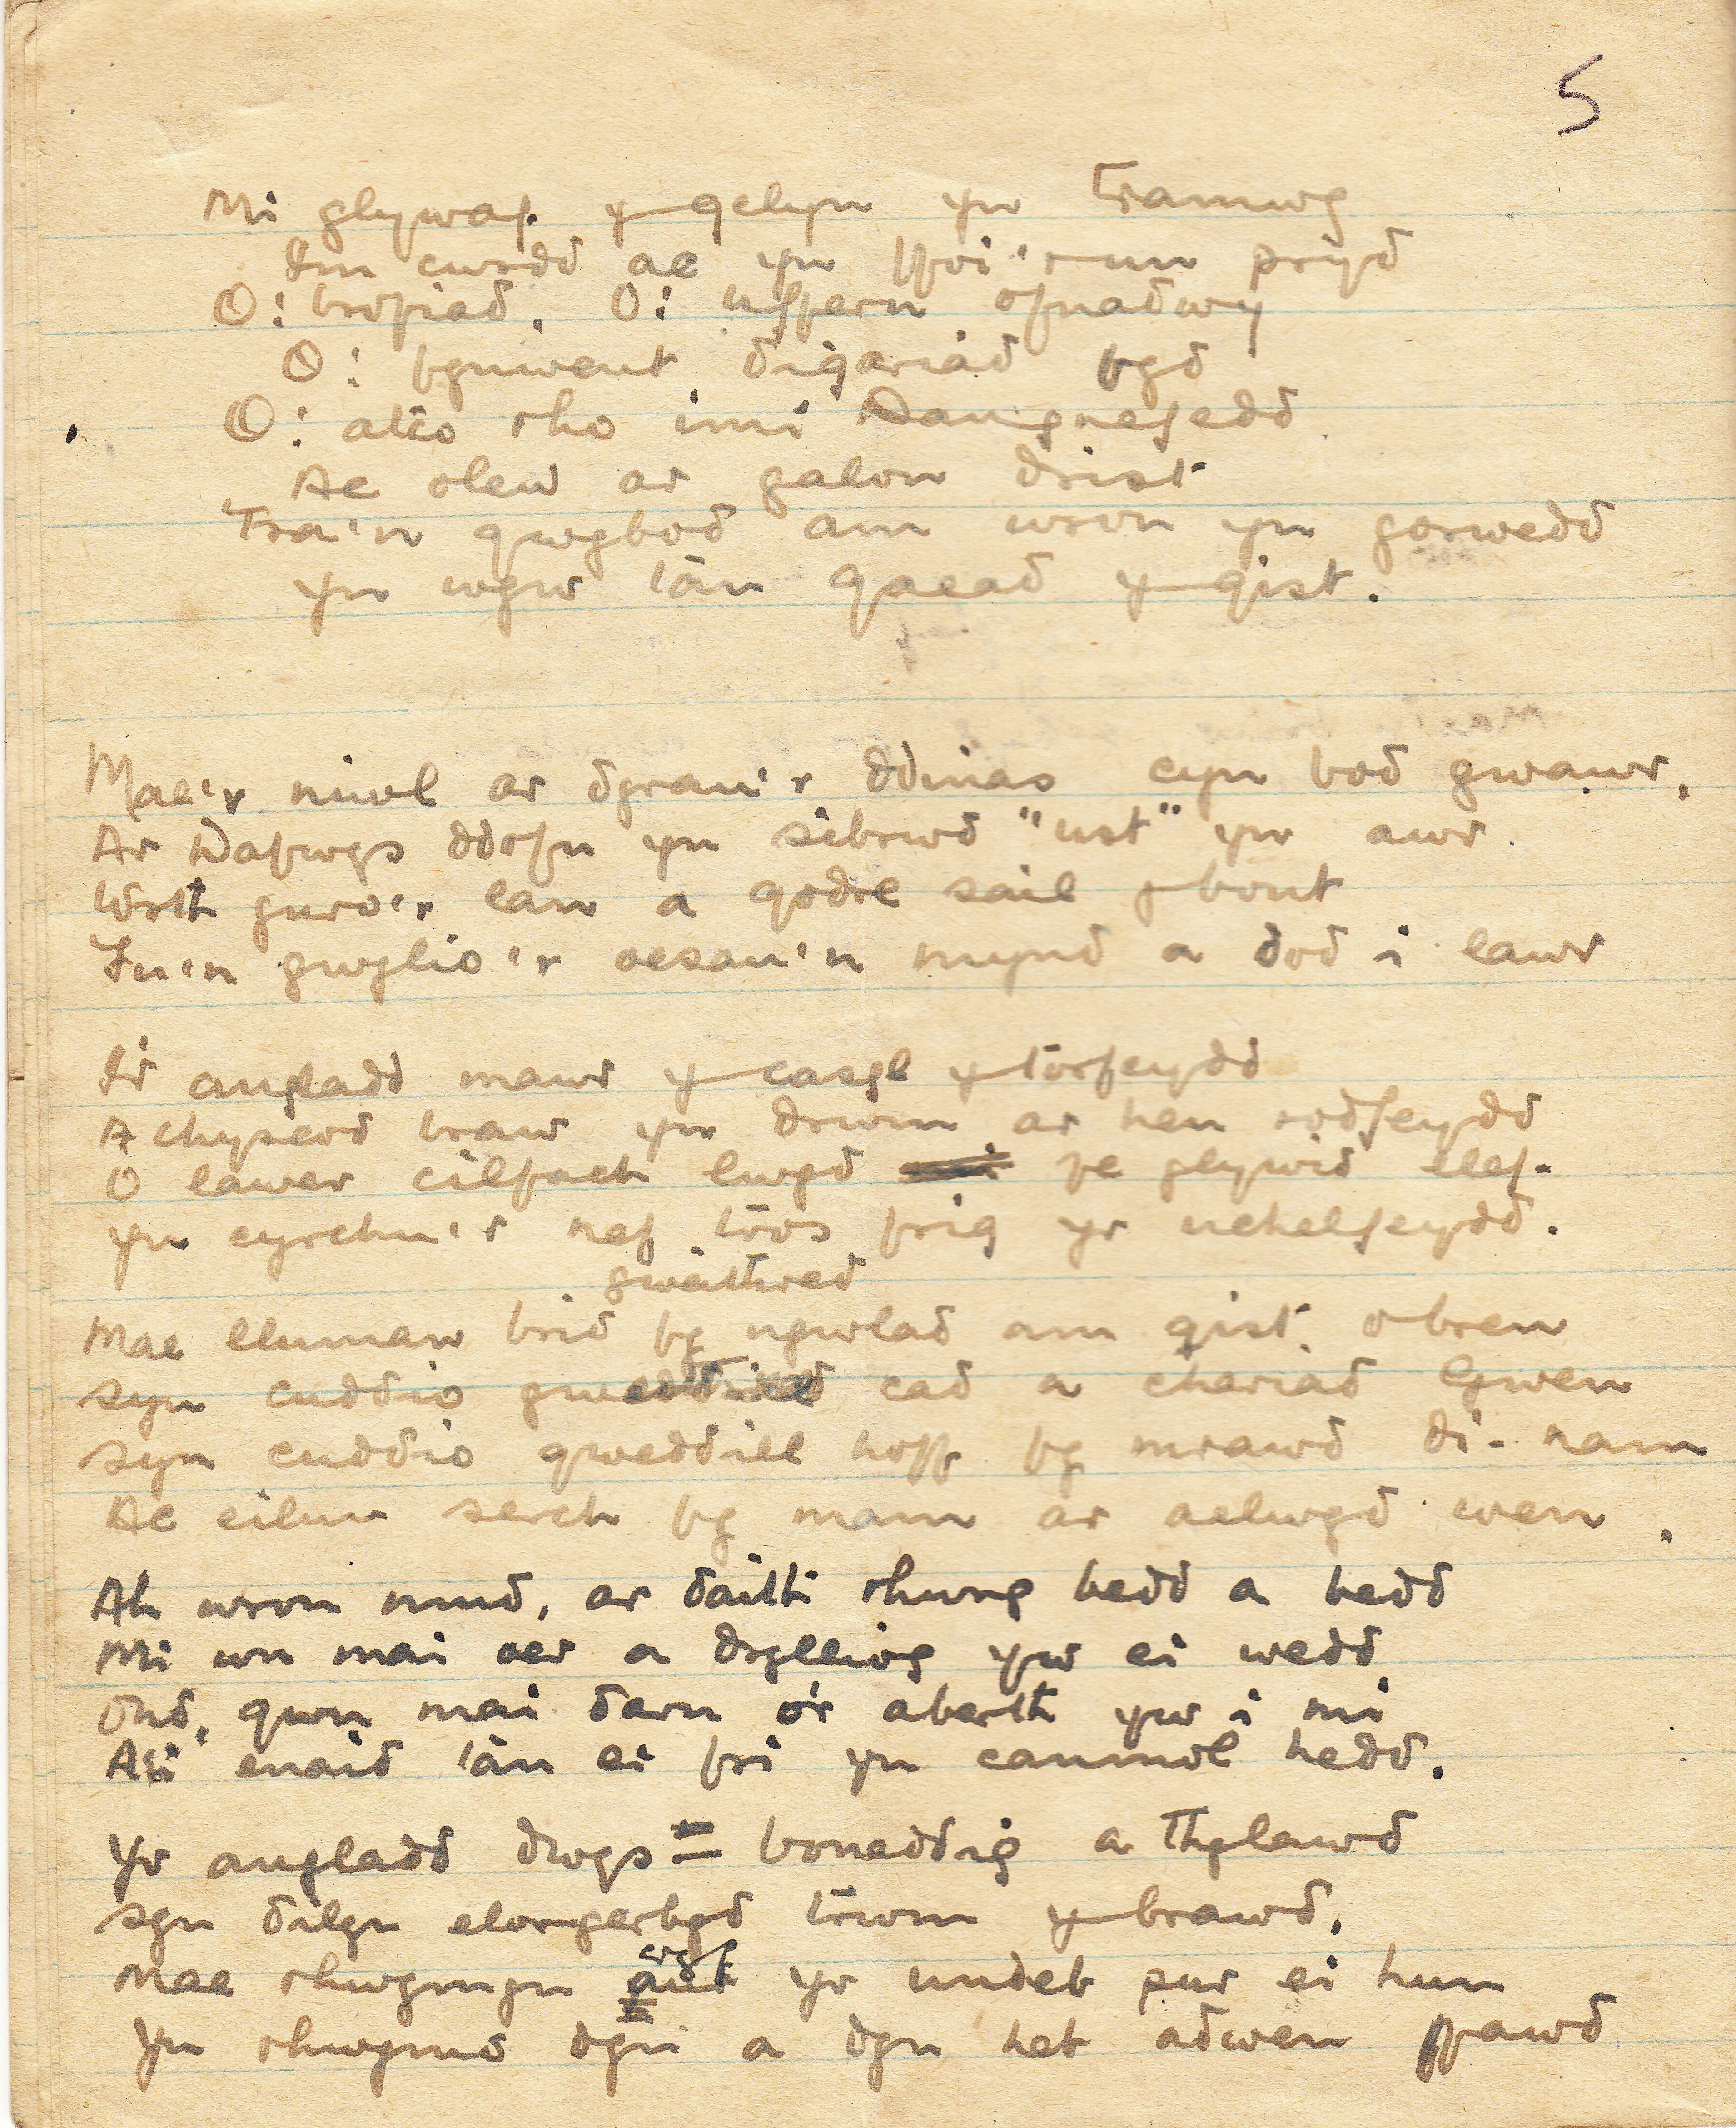 5
Mi glywaf y gelyn yn tramwy
I'm cwrdd ac yn ffoi 'r un pryd
O! brofiad, O! uffern ofnadwy
O! fynwent ddigariad fyd
O! atto rho imi Dangnefedd
Ac olew ar galon drist
Tra'n gwybod am wron yn gorwedd
Yn wyw tan gaead y gist.
Mae'r niwl ar dyrau'r ddinas cyn bod gwawr,
Ar Dafwys ddofn yn sibrwd "ust" yr awr.
Wrth guro'r lan a godre sail y bont
Fu'n gwylio'r oesau'n mynd a dod i lawr
I'r angladd mawr y casgl y torfeydd
A chyserdd braw yn drwm ar hen rodfeydd
O lawer cilfach lwyd fe glywid llef.
Yn cyrchu'r nef tros frig yr uchelfeydd.
gweithred
Mae lluman brid fy ngwlad am gist o bren
syn cuddio cad a chariad Gwen
syn cuddio gweddill hoff fy mrawd di-nam
Ac eilun serch fy mam ar aelwyd wen.
Ah wron mud, ar daith rhwng bedd a hedd
Mi wn mai oer a drylliog yw ei wedd
Ond, gwn mai darn o'r aberth yw i mi
A'i enaid tan ei fri yn canmol hedd.
Yr angladd dwys = boneddig a Thylawd
syn dilyn elorgerbyd trwm y brawd,
cryf
Mae rhwymyn yr undeb pur ei hun
Yn rhwymo dyn a dyn heb adwen ffawd